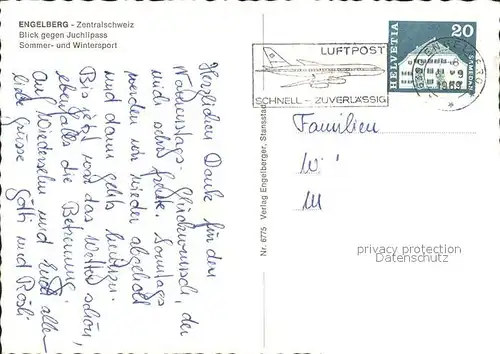 ENGELBERG - Zentralschweiz
Blick gegen Juchlipass
Sommer- und Wintersport
Herzlichen Dank für den
Namenstags Glückwunsch, der
mich sehr freute. Sonntags
werden wir wieder abgeholt
und dann gehts heimzu.
Bis jetzt war das Wetter schön,
ebenfalls die Betreuung.
Auf Wiedersehn und Euch alle
liebe Grüsse Götti und Rösli
Nr. 6775 Verlag Engelberger, Stansstad
LUFTPOST
SCHNELL - ZUVERLÄSSIG
HELVETIA
20
SAMEDAN
ENGELBERG
1969
Familien
W
M
privacy protection
Datenschutz